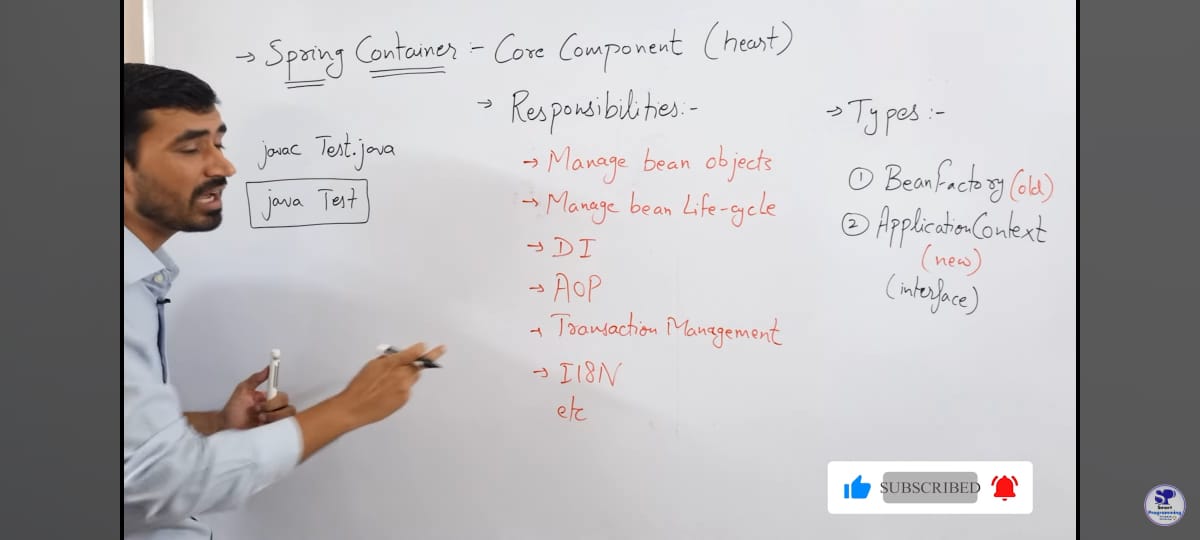 → Spring Container :- Core Component (heart)
javac Test.java
java Test
→ Responsibilities:-
→ Manage bean objects
→ Manage bean Life-cycle
→ DI
→ AOP
→ Transaction Management
→ I18N
etc
→ Types :-
① BeanFactory (old)
② ApplicationContext
(new)
(interface)
SUBSCRIBED
SP
Smart
Programming